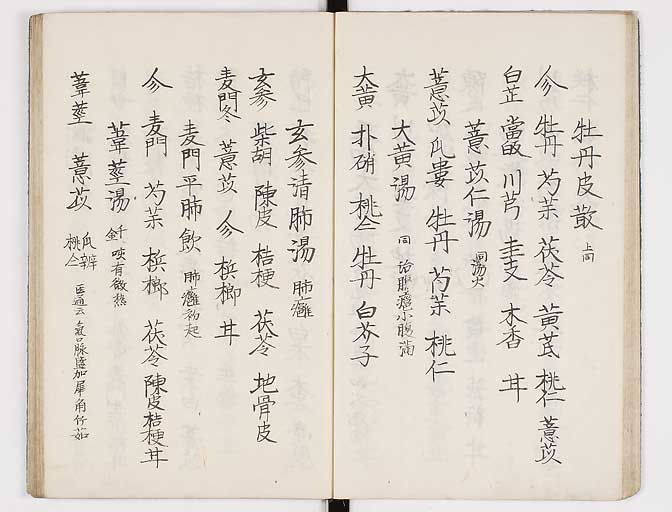 牡丹皮散 上同
参 牡丹 芍薬 茯苓 黄芪 桃仁 薏苡
白芷 當皈 川芎 圭支 木香 甘
薏苡仁湯 同
薏苡 瓜婁 牡丹 芍薬 桃仁
大黄湯 同 治腹癰小腹満
大黄 朴硝 桃仁 牡丹 白芥子
玄参清肺湯 肺癰
玄参 柴胡 陳皮 桔梗 茯苓 地骨皮
麦門冬 薏苡 参 梹榔 甘
麦門平肺飲 肺癰初起
参 麦門 芍薬 梹榔 茯苓 陳皮 桔梗 甘
葦莖湯 千金 咳有微熱
葦莖 薏苡 瓜瓣 桃仁 医通云 氣口脉盛加犀角竹茹